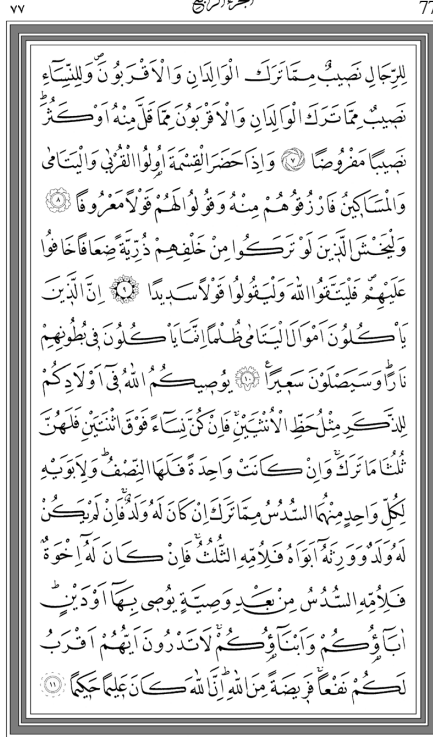 ٧٧ الجزء الرابع 77
لِلرِّجَالِ نَصِيبٌ مِمَّا تَرَكَ الْوَالِدَانِ وَالْاَقْرَبُونَۖ وَلِلنِّسَٓاءِ
نَصِيبٌ مِمَّا تَرَكَ الْوَالِدَانِ وَالْاَقْرَبُونَ مِمَّا قَلَّ مِنْهُ اَوْ كَثُرَۜ
نَصِيبًا مَفْرُوضًا ﴿٧﴾ وَاِذَا حَضَرَ الْقِسْمَةَ اُولُوا الْقُرْبٰى وَالْيَتَامٰى
وَالْمَسَاكِينُ فَارْزُقُوهُمْ مِنْهُ وَقُولُوا لَهُمْ قَوْلًا مَعْرُوفًا ﴿٨﴾
وَلْيَخْشَ الَّذِينَ لَوْ تَرَكُوا مِنْ خَلْفِهِمْ ذُرِّيَّةً ضِعَافًا خَافُوا
عَلَيْهِمْۖ فَلْيَتَّقُوا اللّٰهَ وَلْيَقُولُوا قَوْلًا سَدِيدًا ﴿٩﴾ اِنَّ الَّذِينَ
يَأْكُلُونَ اَمْوَالَ الْيَتَامٰى ظُلْمًا اِنَّمَا يَأْكُلُونَ فِى بُطُونِهِمْ
نَارًاۜ وَسَيَصْلَوْنَ سَعِيرًا۟ ﴿١٠﴾ يُوصِيكُمُ اللّٰهُ فِٓى اَوْلَادِكُمْ
لِلذَّكَرِ مِثْلُ حَظِّ الْاُنْثَيَيْنِۚ فَاِنْ كُنَّ نِسَٓاءً فَوْقَ اثْنَتَيْنِ فَلَهُنَّ
ثُلُثَا مَا تَرَكَۚ وَاِنْ كَانَتْ وَاحِدَةً فَلَهَا النِّصْفُۜ وَلِاَبَوَيْهِ
لِكُلِّ وَاحِدٍ مِنْهُمَا السُّدُسُ مِمَّا تَرَكَ اِنْ كَانَ لَهُ وَلَدٌۚ فَاِنْ لَمْ يَكُنْ
لَهُ وَلَدٌ وَوَرِثَهُٓ اَبَوَاهُ فَلِاُمِّهِ الثُّلُثُۚ فَاِنْ كَانَ لَهُٓ اِخْوَةٌ
فَلِاُمِّهِ السُّدُسُ مِنْ بَعْدِ وَصِيَّةٍ يُوصِى بِهَٓا اَوْ دَيْنٍۜ
اٰبَٓاؤُكُمْ وَاَبْنَٓاؤُكُمْۚ لَا تَدْرُونَ اَيُّهُمْ اَقْرَبُ
لَكُمْ نَفْعًاۜ فَرِيضَةً مِنَ اللّٰهِۜ اِنَّ اللّٰهَ كَانَ عَلِيمًا حَكِيمًا ﴿١١﴾